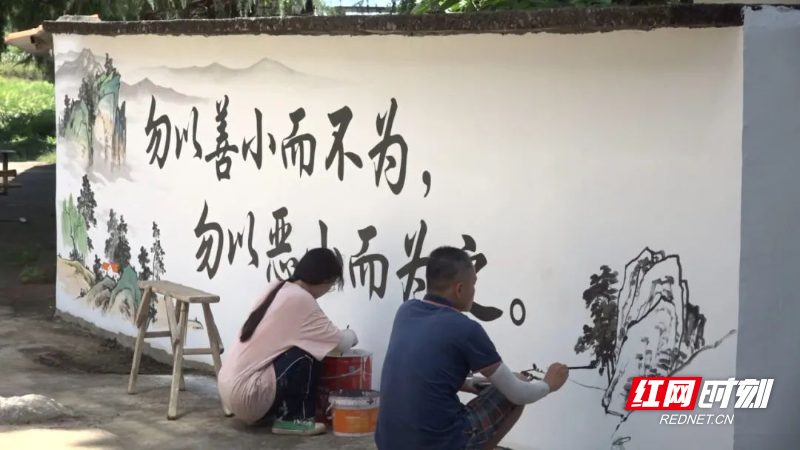 勿以善小而不为，
勿以恶小而为之。
红网时刻
REDNET.CN